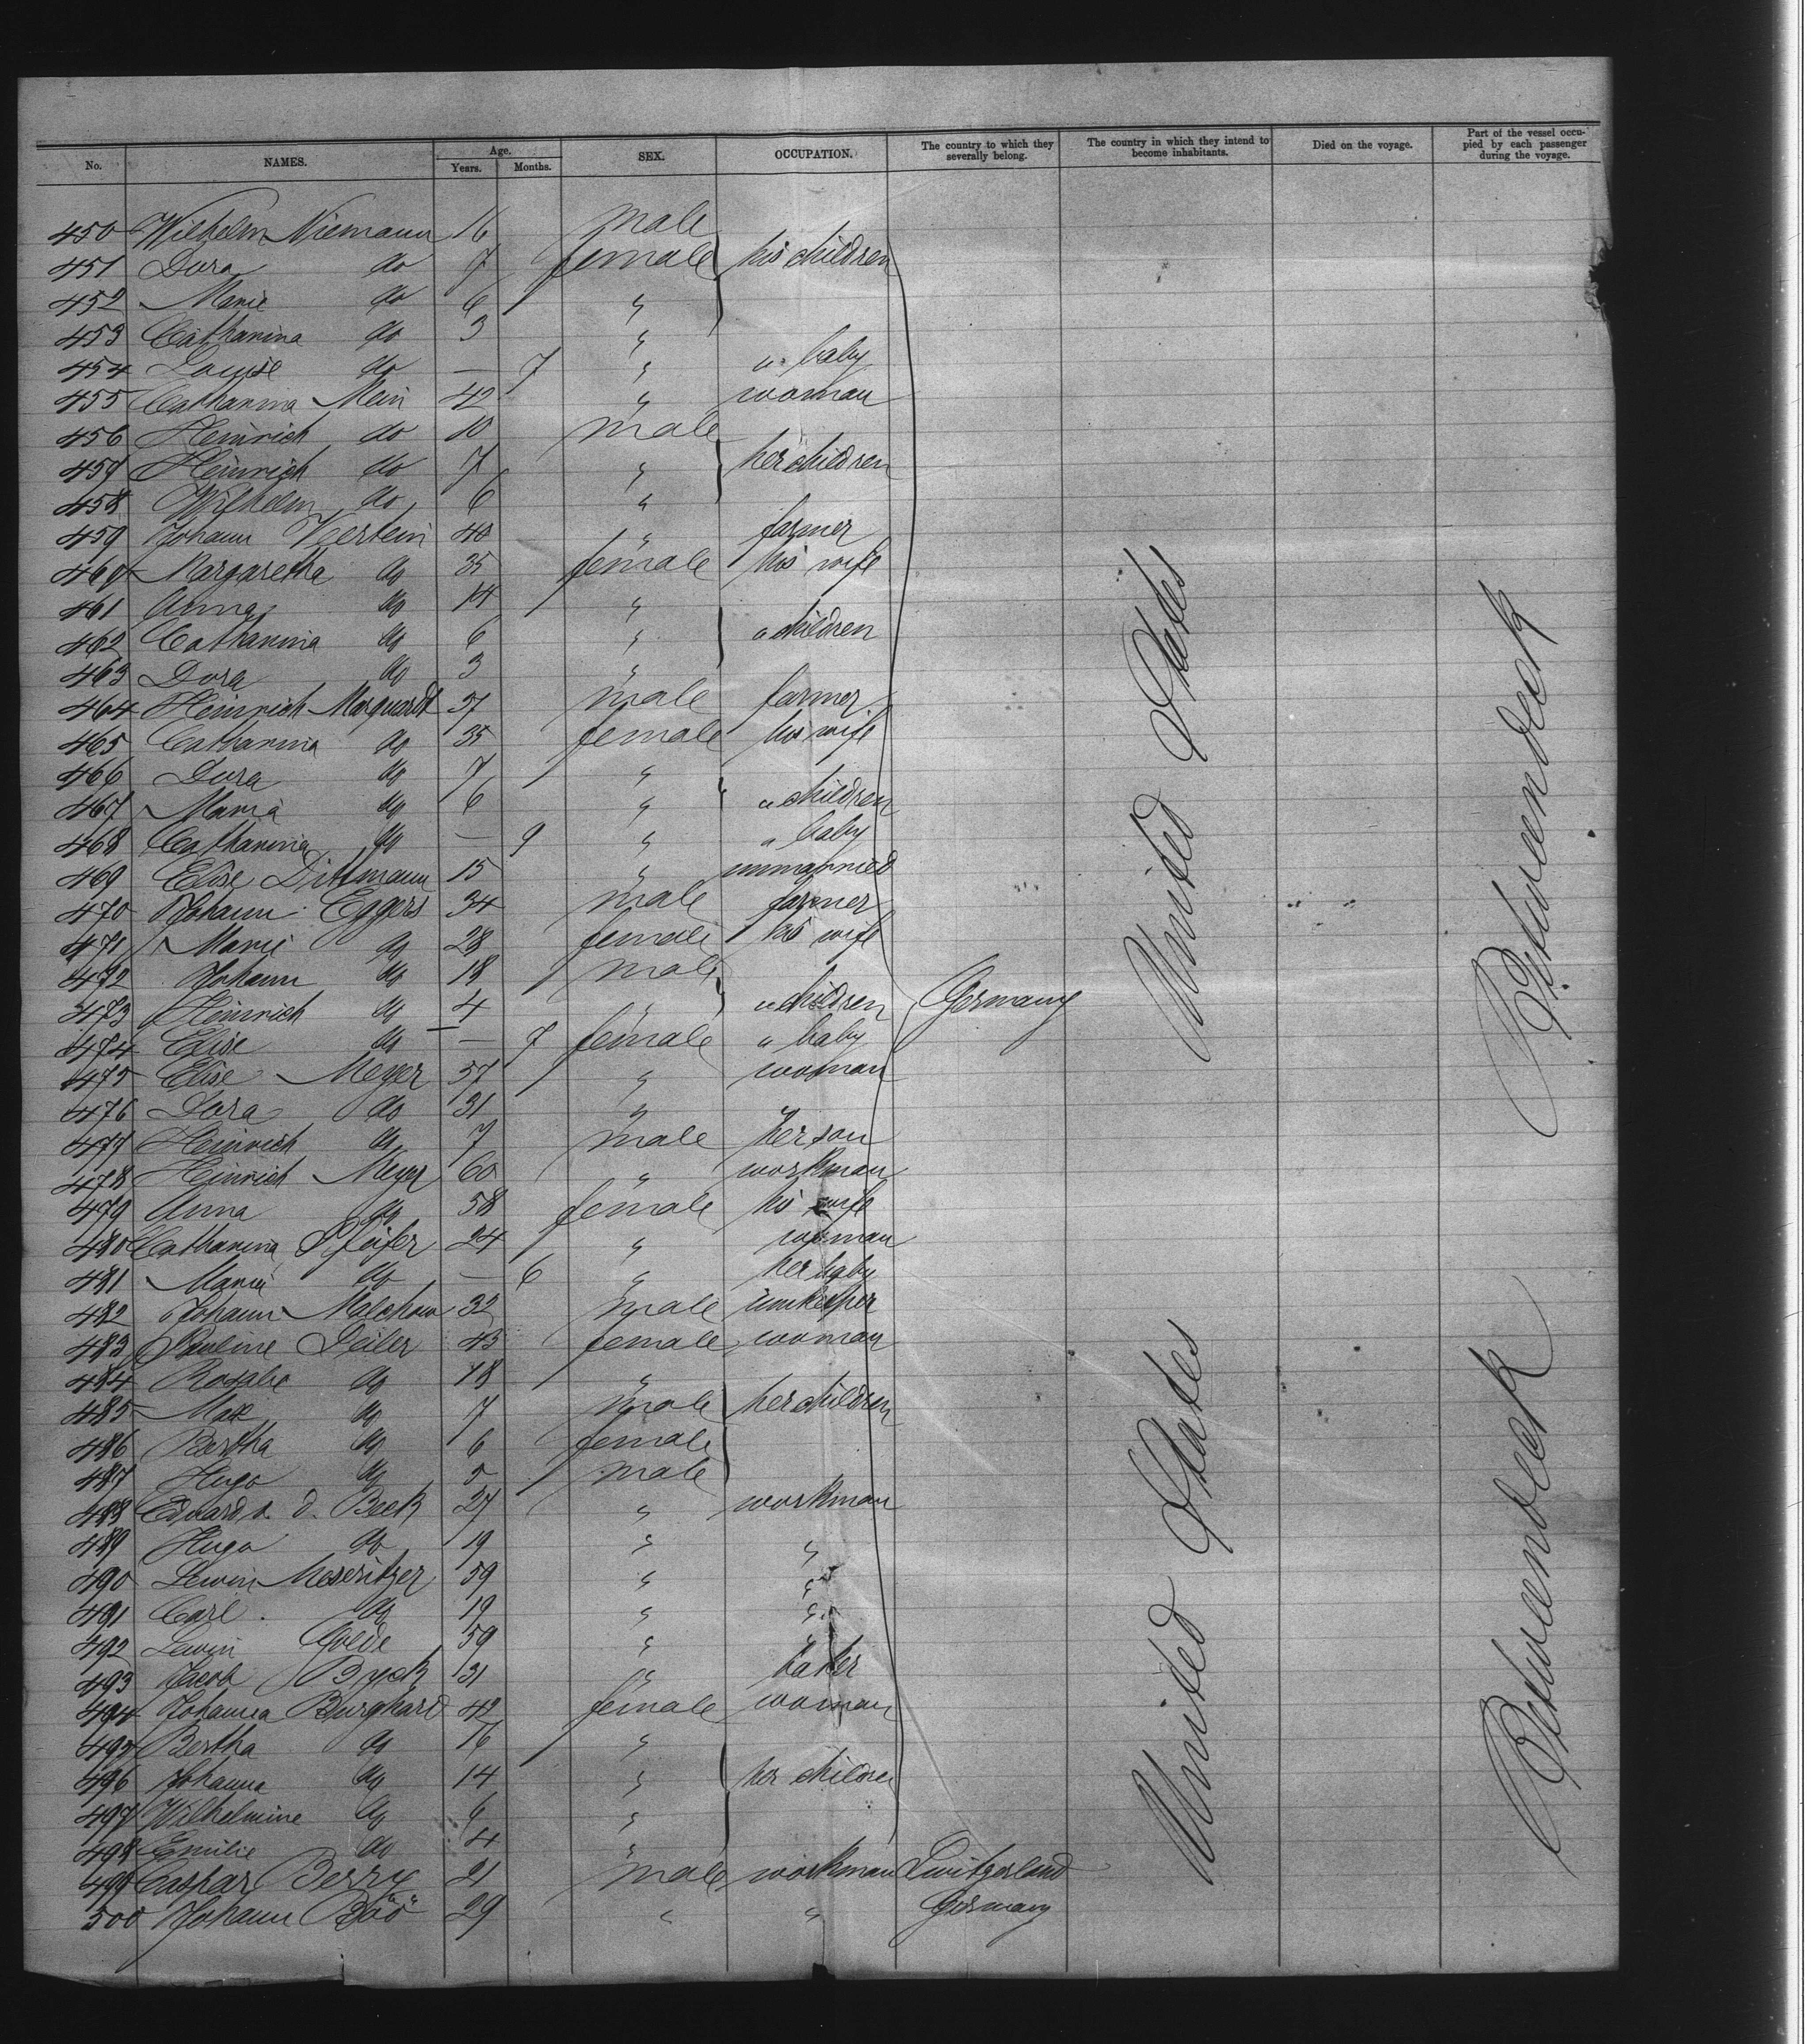 No. NAMES. Age. Years. Months. SEX. OCCUPATION. The country to which they severally belong. The country in which they intend to become inhabitants. Died on the voyage. Part of the vessel occupied by each passenger during the voyage.
450 Wilhelm Niemann 16 male
451 Dora do 7 female his children
452 Marie do 6 "
453 Catharina do 3 "
454 Louise do — 7 " " baby
455 Catharina Mein 42 " woman
456 Heinrich do 10 male
457 Heinrich do 7 " her children
458 Wilhelm do 6 "
459 Johann 40 " farmer
460 Margaretha do 35 female his wife
461 Anna do 14 "
462 Catharina do 6 " " children
463 Dora do 3 "
464 Heinrich Marquardt 37 male farmer
465 Catharina do 35 female his wife
466 Dora do 7 "
467 Maria do 6 " " children
468 Catharina do — 9 " " baby
469 Elise Dittmann 15 " unmarried
470 Johann Eggers 34 male farmer
471 Marie do 28 female his wife
472 Johann do 18 male
473 Heinrich do 4 " " children Germany
474 Elise do — 7 female " baby
475 Elise Meyer 57 " woman
476 Dora do 31 " "
477 Heinrich do 7 male her son
478 Heinrich Meyer 60 " workman
479 Anna do 58 female his wife
480 Catharina Pfeifer 24 " woman
481 Maria do — 6 " her baby
482 Johann Malchow 32 male innkeeper
483 Pauline Deiler 43 female woman
484 Rosalie do 18 "
485 Max do 7 male her children
486 Bertha do 6 female
487 Hugo do 5 male
488 Eduard v. d. Beck 27 " workman
489 Hugo do 19 " "
490 Lewin Meseritzer 59 " "
491 Carl do 19 " "
492 Lewin Golde 59 " "
493 Jacob Byck 31 " baker
494 Johanna Burghard 42 female woman
495 Bertha do 16 "
496 Johanna do 14 " her children
497 Wilhelmine do 6 "
498 Emilie do 4 "
499 Caspar Berry 21 male workman Switzerland
500 Johann 29 " " Germany
United States
United States
Betweendeck
Betweendeck